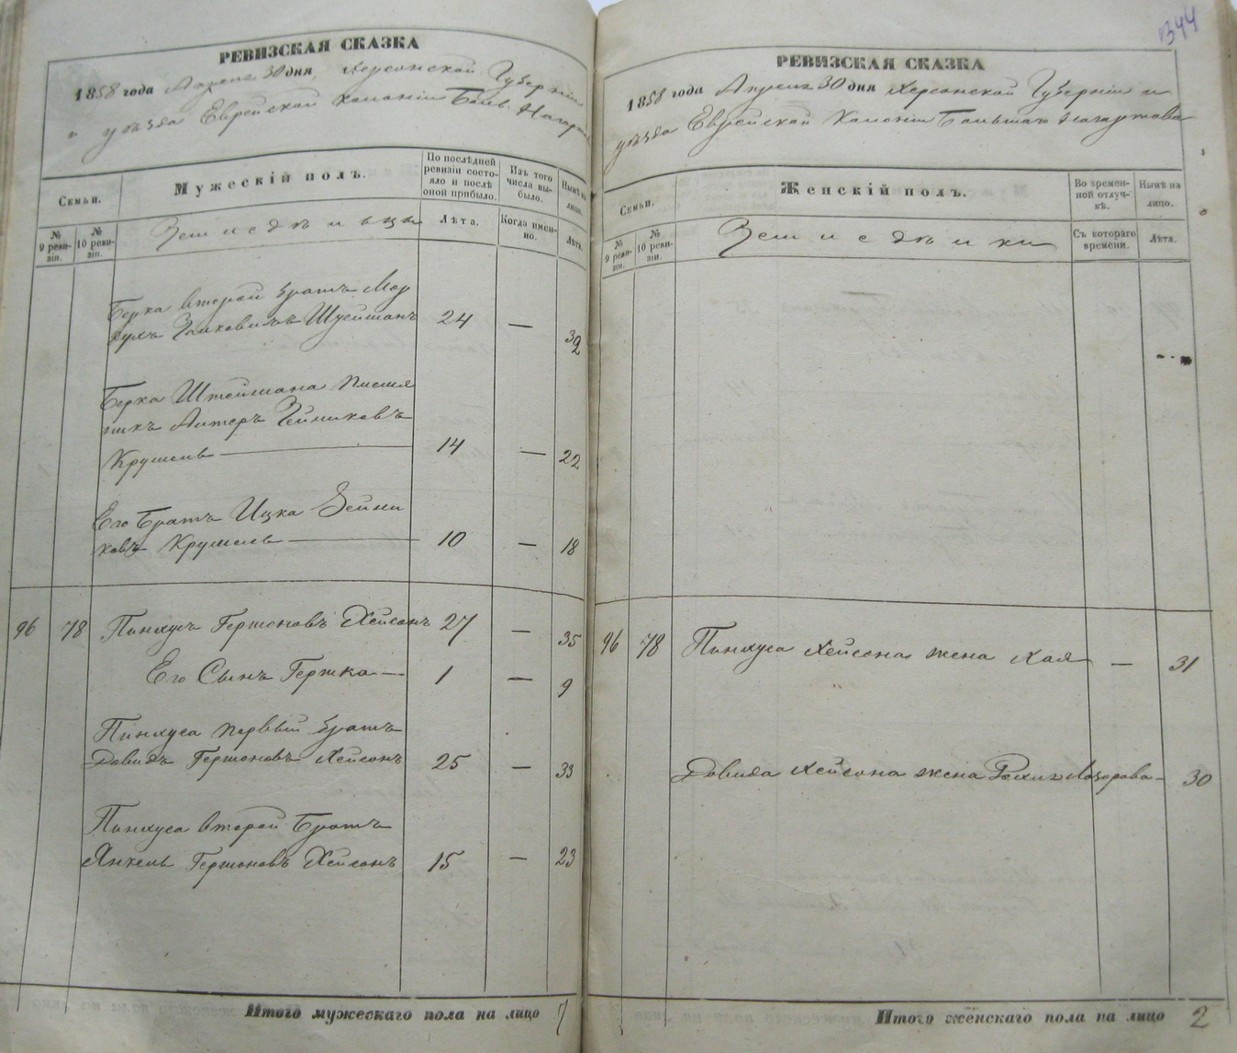 РЕВИЗСКАЯ СКАЗКА
1858 года Апреля 30 дня, Херсонской Губерніи
и уѣзда Еврейской Колоніи Больш. Нагарт
Семьи.
Мужескій полъ.
По послѣдней ревизіи состояло и послѣ оной прибыло.
Изъ того числа выбыло.
Нынѣ на лицо.
№ 9 ревизіи.
№ 10 ревизіи.
Лѣта.
Когда именно.
Лѣта.
Берка второй братъ Мор
24 — 32
Берка Штеймана племя
никъ Алтеръ Зейликовъ
Крушель — 14 — 22
Его Братъ Ицка Зейли
ковъ Крушель — 10 — 18
96 78 Пинхусъ Гершоновъ Хейсонъ 27 — 35
Его Сынъ Гершка — 1 — 9
Пинхуса первый братъ
Довидъ Гершоновъ Хейсонъ 25 — 33
Пинхуса второй Братъ
Янкель Гершоновъ Хейсонъ 15 — 23
Итого мужескаго пола на лицо 7
344
РЕВИЗСКАЯ СКАЗКА
1858 года Апреля 30 дня Херсонской Губерніи и
уѣзда Еврейской Колоніи Большаго Нагартова
Семьи.
Женскій полъ.
Во временной отлучкѣ.
Нынѣ на лицо.
№ 9 ревизіи.
№ 10 ревизіи.
Съ котораго времени.
Лѣта.
96 78 Пинхуса Хейсона жена Хая — 31
Довида Хейсона жена — 30
Итого женскаго пола на лицо 2